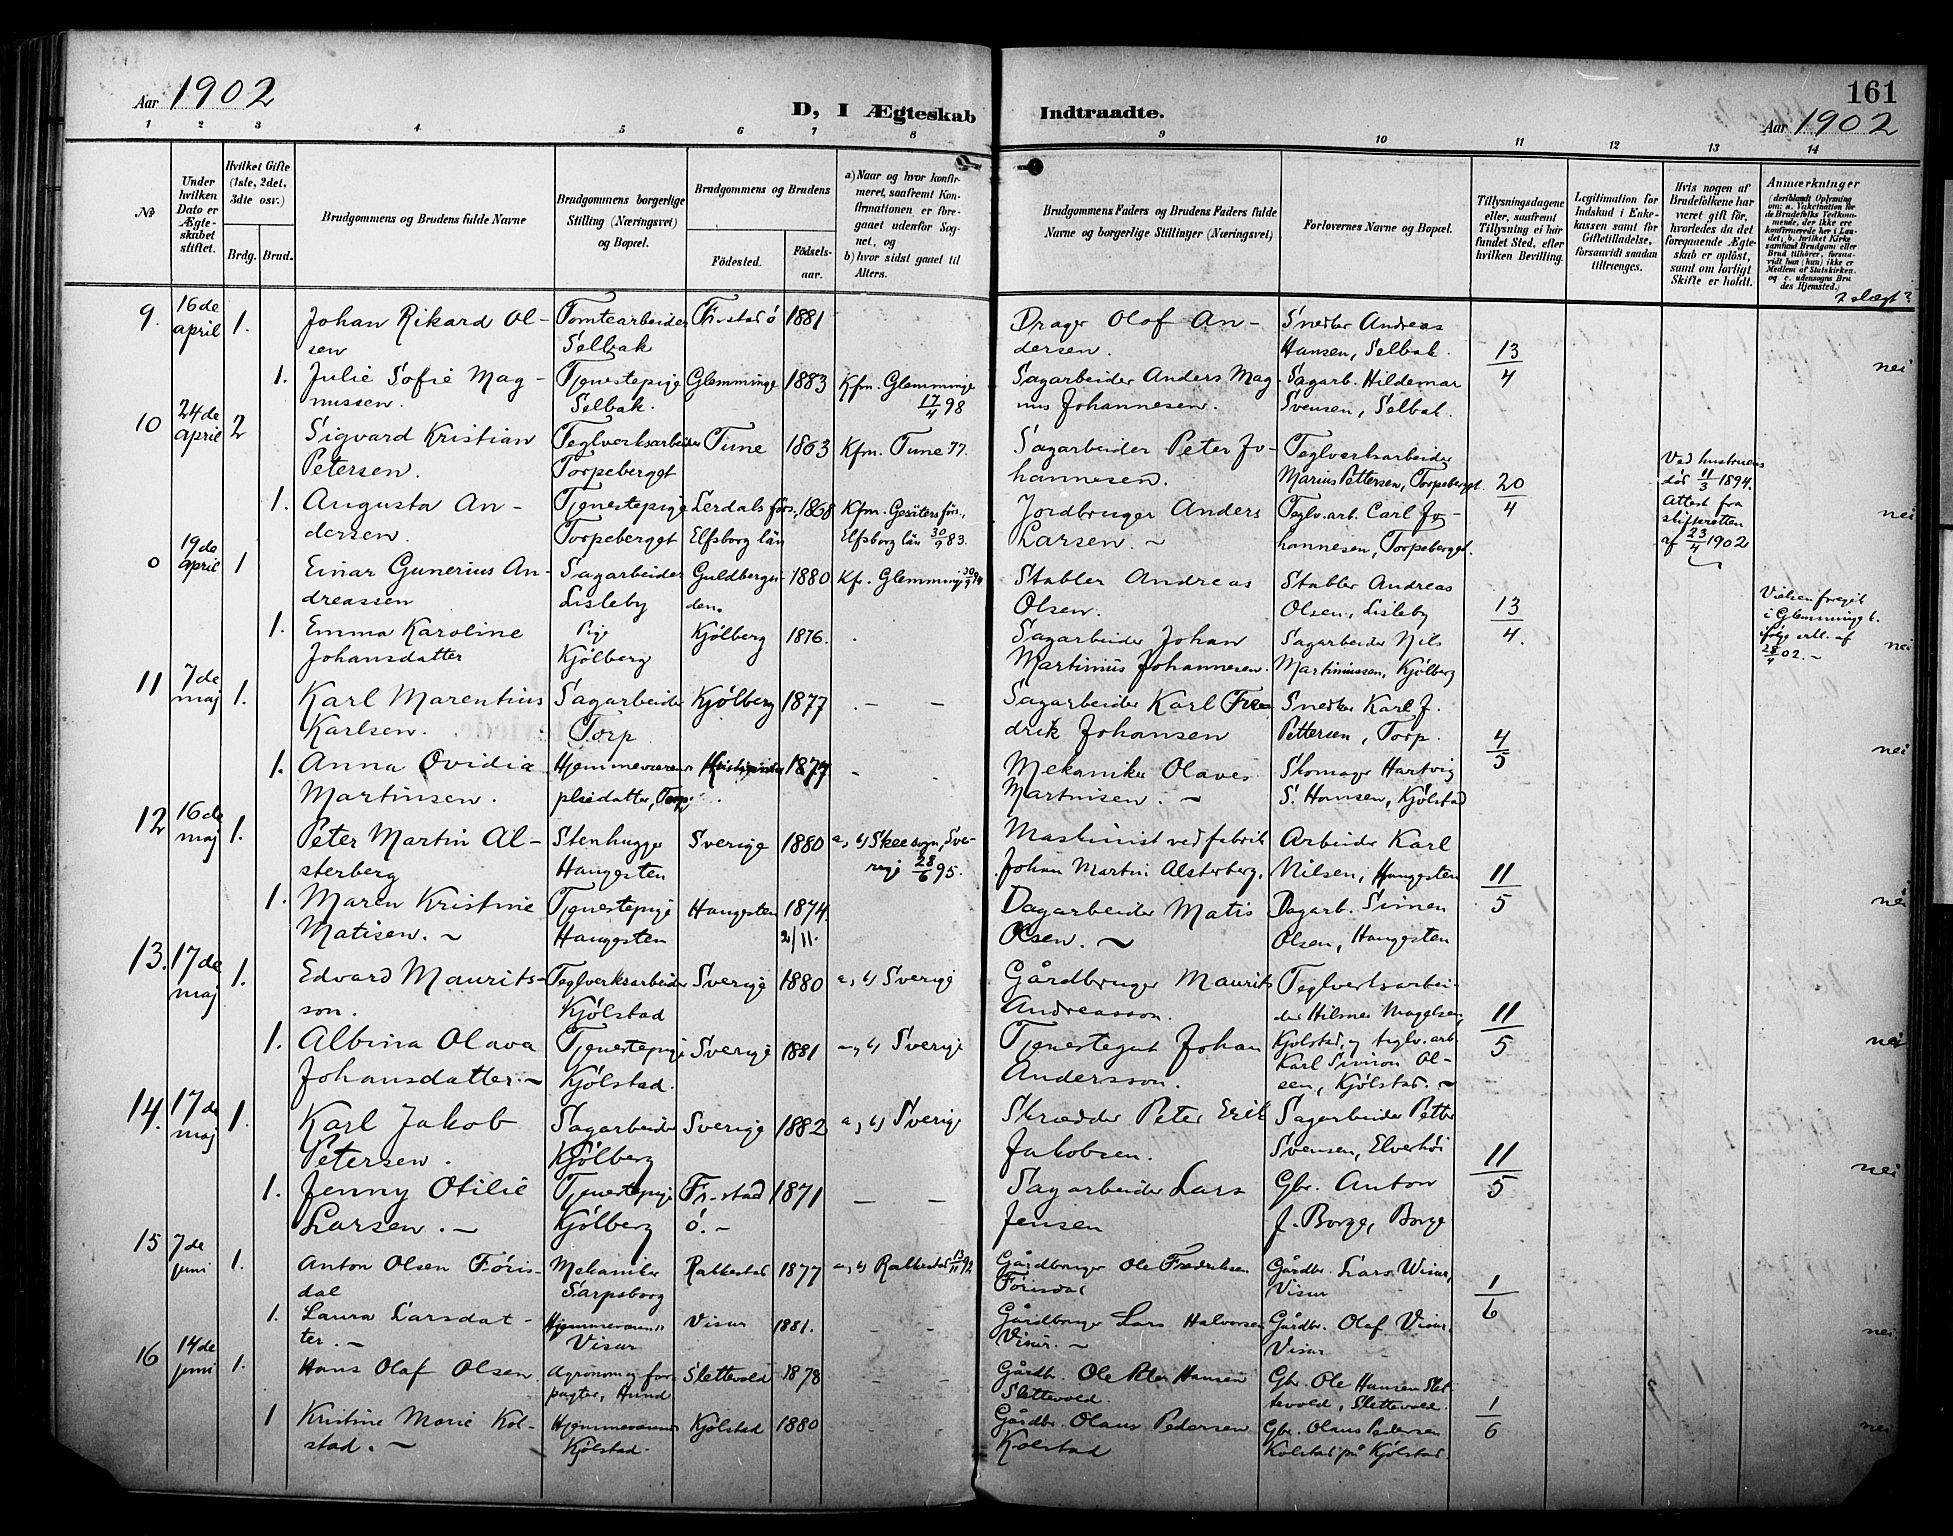 Aar 1902
D, I Ægteskab Indtraadte.
161
Aar 1902
1 2 3 4 5 6 7 8 9 10 11 12 13 14
No
Under hvilken Dato er Ægteskabet stiftet.
Hvilket Gifte (1ste, 2det, 3dte osv.)
Brdg. Brud.
Brudgommens og Brudens fulde Navne
Brudgommens borgerlige Stilling (Næringsvei) og Bopæl.
Brudgommens og Brudens
Fødested. Fødselsaar.
a) Naar og hvor konfirmeret, saafremt Konfirmationen er foregaaet udenfor Sognet, og
b) hvor sidst gaaet til Alters.
Brudgommens Faders og Brudens Faders fulde Navne og borgerlige Stillinger (Næringsvei)
Forlovernes Navne og Bopæl.
Tillysningsdagene eller, saafremt Tillysning ei har fundet Sted, efter hvilken Bevilling.
Legitimation for Indskud i Enkekassen samt for Giftetilladelse, forsaavidt saadan tiltrænges.
Hvis nogen af Brudefolkene har været gift før, hvorledes da det foregaaende Ægteskab er opløst, samt om lovligt Skifte er holdt.
Anmærkninger (deriblandt Oplysning om: a. Vakcination for de Brudefolks Vedkommende, der ikke ere konfirmerede her i Landet; b. hvilket Kirkesamfund Brudgom eller Brud tilhører, forsaavidt han (hun) ikke er Medlem af Statskirken, og c. udensogns Brudes Hjemsted.)
? slægt?
9. 16de april 1. Johan Rikard Olsen Tomtearbeider Selbak Fr.stad ø 1881 Drager Olaf Andersen. Snedker Andreas Hansen, Selbak. 13/4
1. Julie Sofie Magnussen. Tjenestepige Selbak. Glemminge 1883 Kfm. Glemminge 17/4 98 Sagarbeider Anders Magnus Johannesen. Sagarb. Hildemar Svensen, Selbak. nei
10 24de april 2 Sigvard Kristian Petersen. Teglverksarbeider Torpeberget Tune 1863 Kfm. Tune 77. Sagarbeider Peter Johannesen. Teglverksarbeider Marius Pettersen, Torpeberget 20/4 Ved hustruens død 11/3 1894. Attest fra skifteretten af 23/4 1902
1. Augusta Andersen. Tjenestepige Torpeberget Lerdals förs., Elfsborg län 1868 Kfm. Gesäters förs., Elfsborg län 30/9 83. Jordbruger Anders Larsen. Teglv.arb. Carl Johannesen, Torpeberget. nei
0 19de april 1 Einar Gunerius Andreassen Sagarbeider Lisleby Guldbergunden. 1880 Kf. Glemminge 30/9 94 Stabler Andreas Olsen. Stabler Andreas Olsen, Lisleby 13/4. Vielsen foregik i Glemminge k. ifølge erkl. af 28/4 02.
1. Emma Karoline Johansdatter Pige Kjølberg Kjølberg 1876. Sagarbeider Johan Martinius Johannesen. Sagarbeider Nils Martiniussen, Kjølberg nei
11 7de maj 1. Karl Marentius Karlsen. Sagarbeider Torp Kjølberg 1877 Sagarbeider Karl Fredrik Johansen Snedker Karl J. Pettersen, Torp. 4/5
1. Anna Ovidia Martinsen. Hjemmeværende pleiedatter, Torp 1877 Mekaniker Olaves Martinisen. Skomager Hartvig S. Hansen, Kjølstad nei
12 16de maj 1. Peter Martin Alsterberg Stenhugger Haugesten Sverige 1880 a, b) Skee sogn, Sverige 28/6 95. Maskinist ved fabrik Johan Martin Alsterberg. Arbeider Karl Nilsen, Haugesten 11/5
1. Maren Kristine Matisen. Tjenestepige Haugesten Haugesten 1874. 2/11. Dagarbeider Matis Olsen. Dagarb. Simen Olsen, Haugesten nei
13. 17de maj 1. Edvard Mauritsson. Teglverksarbeider Kjølstad Sverige 1880 a, b) Sverige Gårdbruger Maurits Andreasson. Teglverksarbeider Hilmer Magelsen, 11/5
1. Albina Olava Johansdatter. Tjenestepige Kjølstad. Sverige 1881 a, b) Sverige Tjenestegut Johan Andersson. Kjølstad, og teglv.arb. Karl Simon Olsen, Kjølstad. nei
14. 17de maj 1. Karl Jakob Petersen. Sagarbeider Kjølberg Sverige 1882 a, b) Sverige Skrædder Peter Erik Jakobsen. Sagarbeider Petter Svensen, Elverhøi 11/5
1. Jenny Otilie Larsen. Tjenestepige Kjølberg Fr.stad ø. 1871 Sagarbeider Lars Jensen Gbr. Anton J. Borge, Borge nei
15 7de juni 1. Anton Olsen Førisdal Mekaniker Sarpsborg Rakkestad 1877 a, b) Rakkestad 13/11 92 Gårdbruger Ole Fredriksen Førisdal Gårdbr. Lars Wisur, Visur 1/6
1. Laura Larsdatter. Hjemmeværende Visur Visur 1881. Gårdbruger Lars Halvorsen Visur. Gårdbr. Olaf Visur, Visur nei
16 14de juni 1. Hans Olaf Olsen. Agronom og forpagter, Hund Slettevold 1878 Gårdbr. Ole Peter Hansen Slettevold. Gbr. Ole Hansen Slettevold, Slettevold. 1/6
1 Kristine Marie Kolstad. Hjemmeværende Kjølstad. Kjølstad 1880 Gårdbr. Olaus Pedersen Kolstad Gbr. Olaus Pedersen Kolstad på Kjølstad. nei